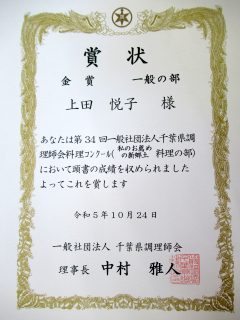 賞状
金賞 一般の部
上田 悦子 様
あなたは第34回一般社団法人千葉県調
理師会料理コンクール(私のお薦めの新郷土料理の部)
において頭書の成績を収められました
よってこれを賞します
令和5年10月24日
一般社団法人 千葉県調理師会
理事長 中村 雅人